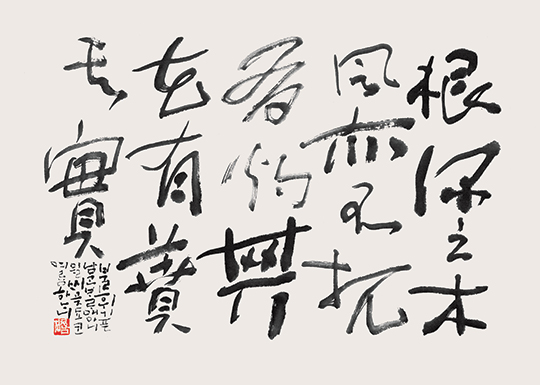 根深之木
風亦不扤
有灼其
華有蕡
其實
불휘기픈
남ᄀᆞᆫᄇᆞᄅᆞ매아니
뮐ᄊᆡ곶됴코
여름하ᄂᆞ니